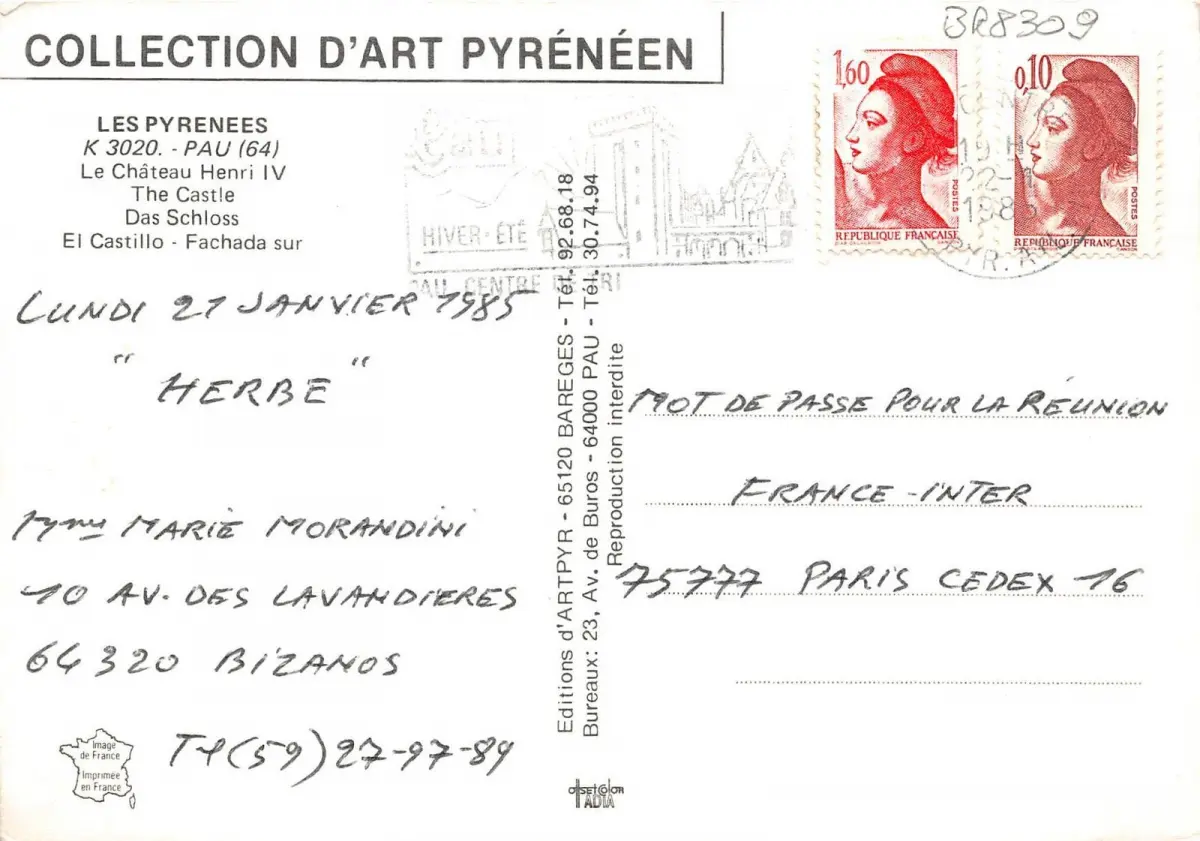 BR8309
COLLECTION D'ART PYRÉNÉEN
LES PYRENEES
K 3020. - PAU (64)
Le Château Henri IV
The Castle
Das Schloss
El Castillo - Fachada sur
HIVER - ÉTÉ
PAU CENTRE DE
1,60
POSTES
RÉPUBLIQUE FRANÇAISE
0,10
POSTES
RÉPUBLIQUE FRANÇAISE
19 H
22-1
1985
PYR. A
LUNDI 21 JANVIER 1985
"HERBE"
MARIE MORANDINI
10 AV. DES LAVANDIERES
64320 BIZANOS
Tl (59) 27-97-89
Image
de France
Imprimée
en France
Editions d'ARTPYR - 65120 BAREGES - Tél. 92.68.18
Bureaux: 23, Av. de Buros - 64000 PAU - Tél. 30.74.94
Reproduction interdite
MOT DE PASSE POUR LA RÉUNION
FRANCE-INTER
75777 PARIS CEDEX 16
OFFSET COLOR
ADIA